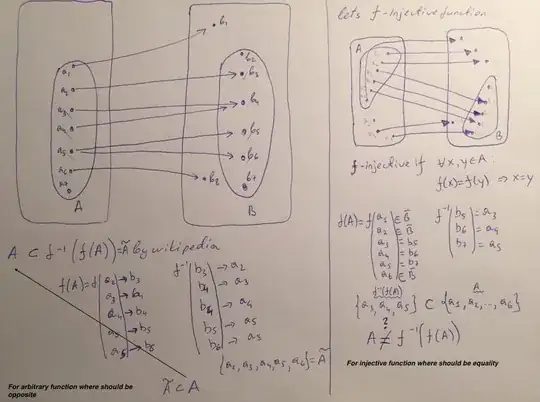 b₁
b₂
a₁
b₃
a₂
a₃
b₄
a₄
b₅
a₅
b₆
a₆
b₈
b₇
a₇
A
B
A ⊂ f⁻¹(f(A)) = Ã by wikipedia
f(A) = f
a₂ → b₃
a₃ → b₄
a₄ → b₄
a₅ → b₅
a₅ → b₆
f⁻¹
b₃ → a₂
b₄ → a₃
b₄ → a₄
b₅ → a₅
b₆ → a₅
{a₂, a₃, a₄, a₅, a₆} = Ã
Ã ⊂ A
For arbitrary function where should be
opposite
lets f-Injective function
A
B
f-injective if ∀x,y∈A
f(x)=f(y) ⇒ x=y
f(A) = f
a₁ ∈ B̄
a₂ ∈ B̄
a₃ = b₅
a₄ = b₆
a₅ = b₇
a₆ ∈ B̄
f⁻¹
b₅ = a₃
b₆ = a₄
b₇ = a₅
f⁻¹(f(A))
A
{a₃, a₄, a₅} ⊂ {a₁, a₂, ..., a₆}
?
A ≠ f⁻¹(f(A))
For injective function where should be equality